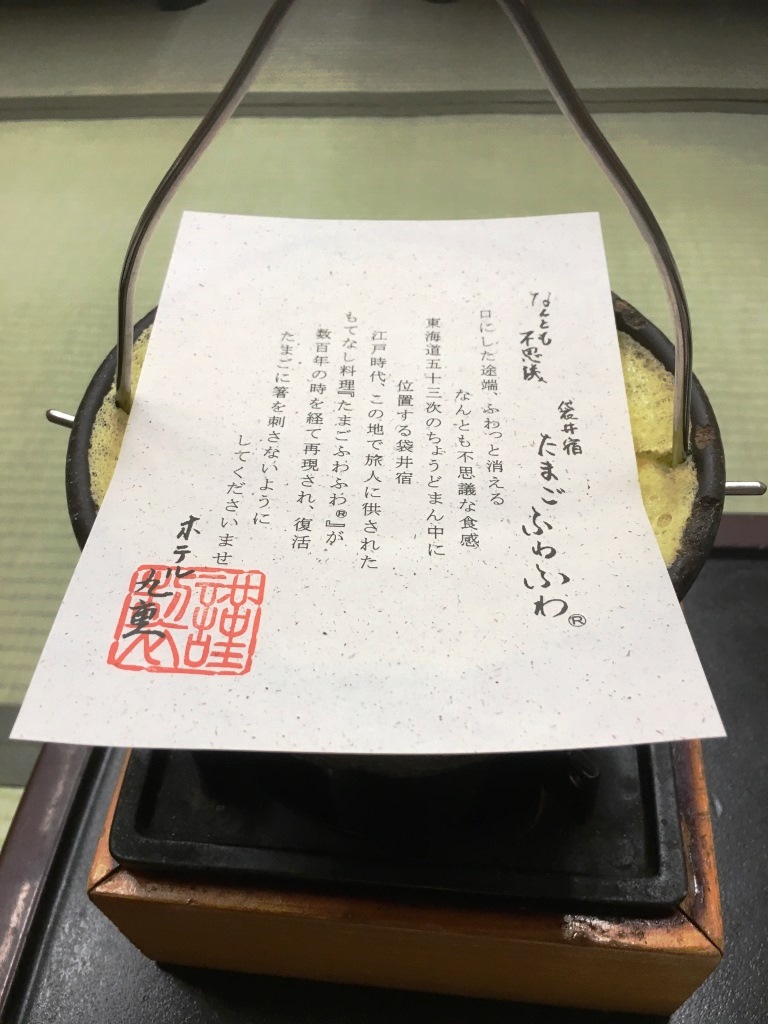 なんとも
不思議
袋井宿
たまごふわふわ®
口にした途端、ふわっと消える
なんとも不思議な食感
東海道五十三次のちょうどまん中に
位置する袋井宿
江戸時代、この地で旅人に供された
もてなし料理『たまごふわふわ®』が
数百年の時を経て再現され、復活
たまごに箸を刺さないように
してくださいませ
ホテル九重
謹製